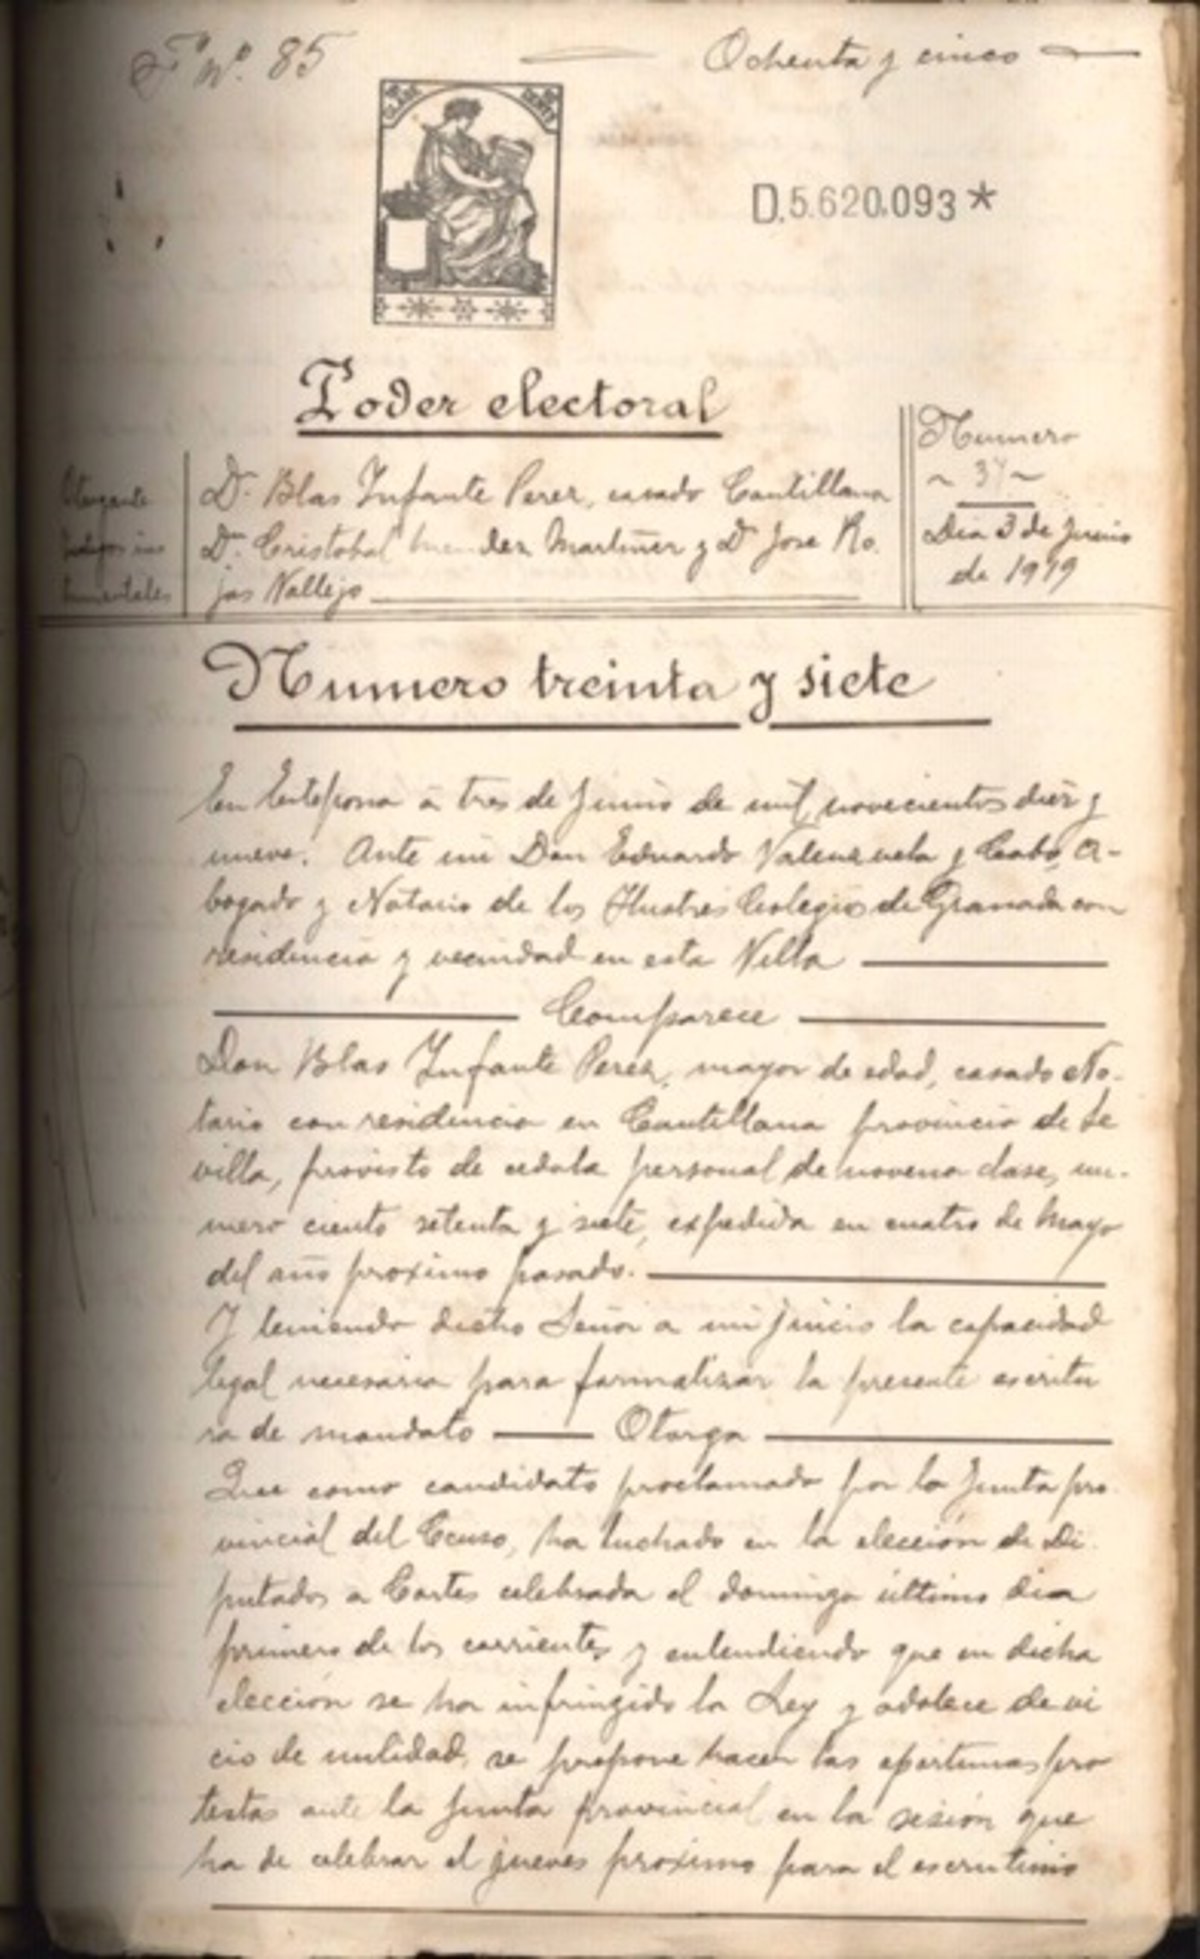 Fº Nº. 85
Ochenta y cinco
D.5.620.093*
Poder electoral
Otorgante
D. Blas Infante Perez, casado Cantillana
D. Cristobal Mendez Martinez y D Jose Ro.
jas Vallejo
Numero
~ 37 ~
Dia 3 de Junio
de 1919
Numero treinta y siete
En Estepona a tres de Junio de mil novecientos diez y
nueve. Ante mi Don Eduardo Valenzuela y Cabo, A-
bogado y Notario de los Ilustres Colegios de Granada con
residencia y vecindad en esta Villa
Comparece
Don Blas Infante Perez, mayor de edad, casado No-
tario con residencia en Cantillana provincia de Se
villa, provisto de cedula personal de novena clase, nu-
mero ciento setenta y siete, expedida en cuatro de Mayo
del año proximo pasado.
Y teniendo dicho Señor a mi juicio la capacidad
legal necesaria para formalizar la presente escritu
ra de mandato Otorga
Que como candidato proclamado por la Junta pro
vincial del Censo, ha luchado en la elección de Di
putados a Cortes celebrada el domingo último dia
primero de los corrientes y entendiendo que en dicha
elección se ha infringido la Ley y adolece de vi
cio de nulidad, se propone hacer las oportunas pro
testas ante la Junta provincial en la sesión que
ha de celebrar el jueves proximo para el escrutinio